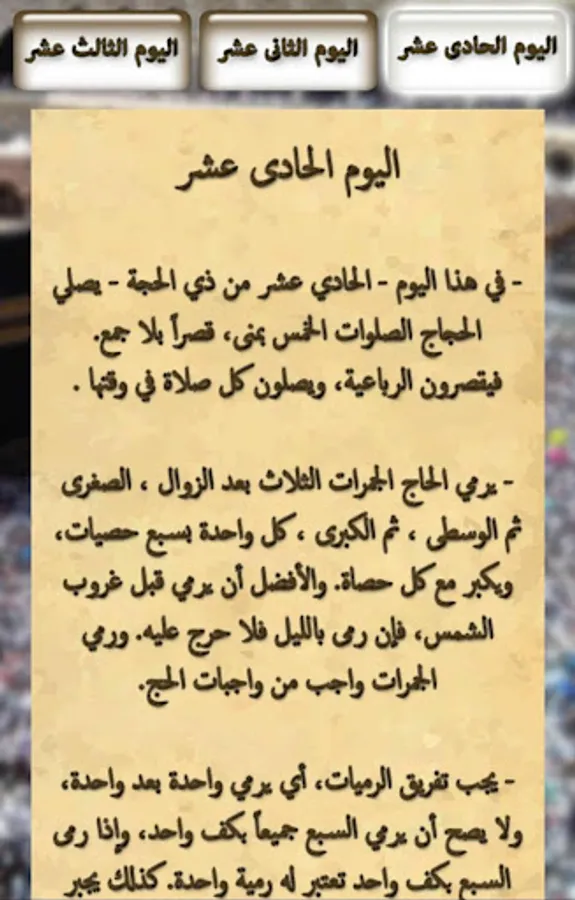 اليوم الحادى عشر
اليوم الثانى عشر
اليوم الثالث عشر
اليوم الحادى عشر
- في هذا اليوم - الحادي عشر من ذي الحجة - يصلي
الحجاج الصلوات الخمس بمنى، قصراً بلا جمع.
فيقصرون الرباعية، ويصلون كل صلاة في وقتها .
- يرمي الحاج الجمرات الثلاث بعد الزوال ، الصغرى
ثم الوسطى ، ثم الكبرى ، كل واحدة بسبع حصيات،
ويكبر مع كل حصاة. والأفضل أن يرمي قبل غروب
الشمس، فإن رمى بالليل فلا حرج عليه. ورمي
الجمرات واجب من واجبات الحج.
- يجب تفريق الرميات، أي يرمي واحدة بعد واحدة،
ولا يصح أن يرمي السبع جميعاً بكف واحد، وإذا رمى
السبع بكف واحد تعتبر له رمية واحدة. كذلك يجبر